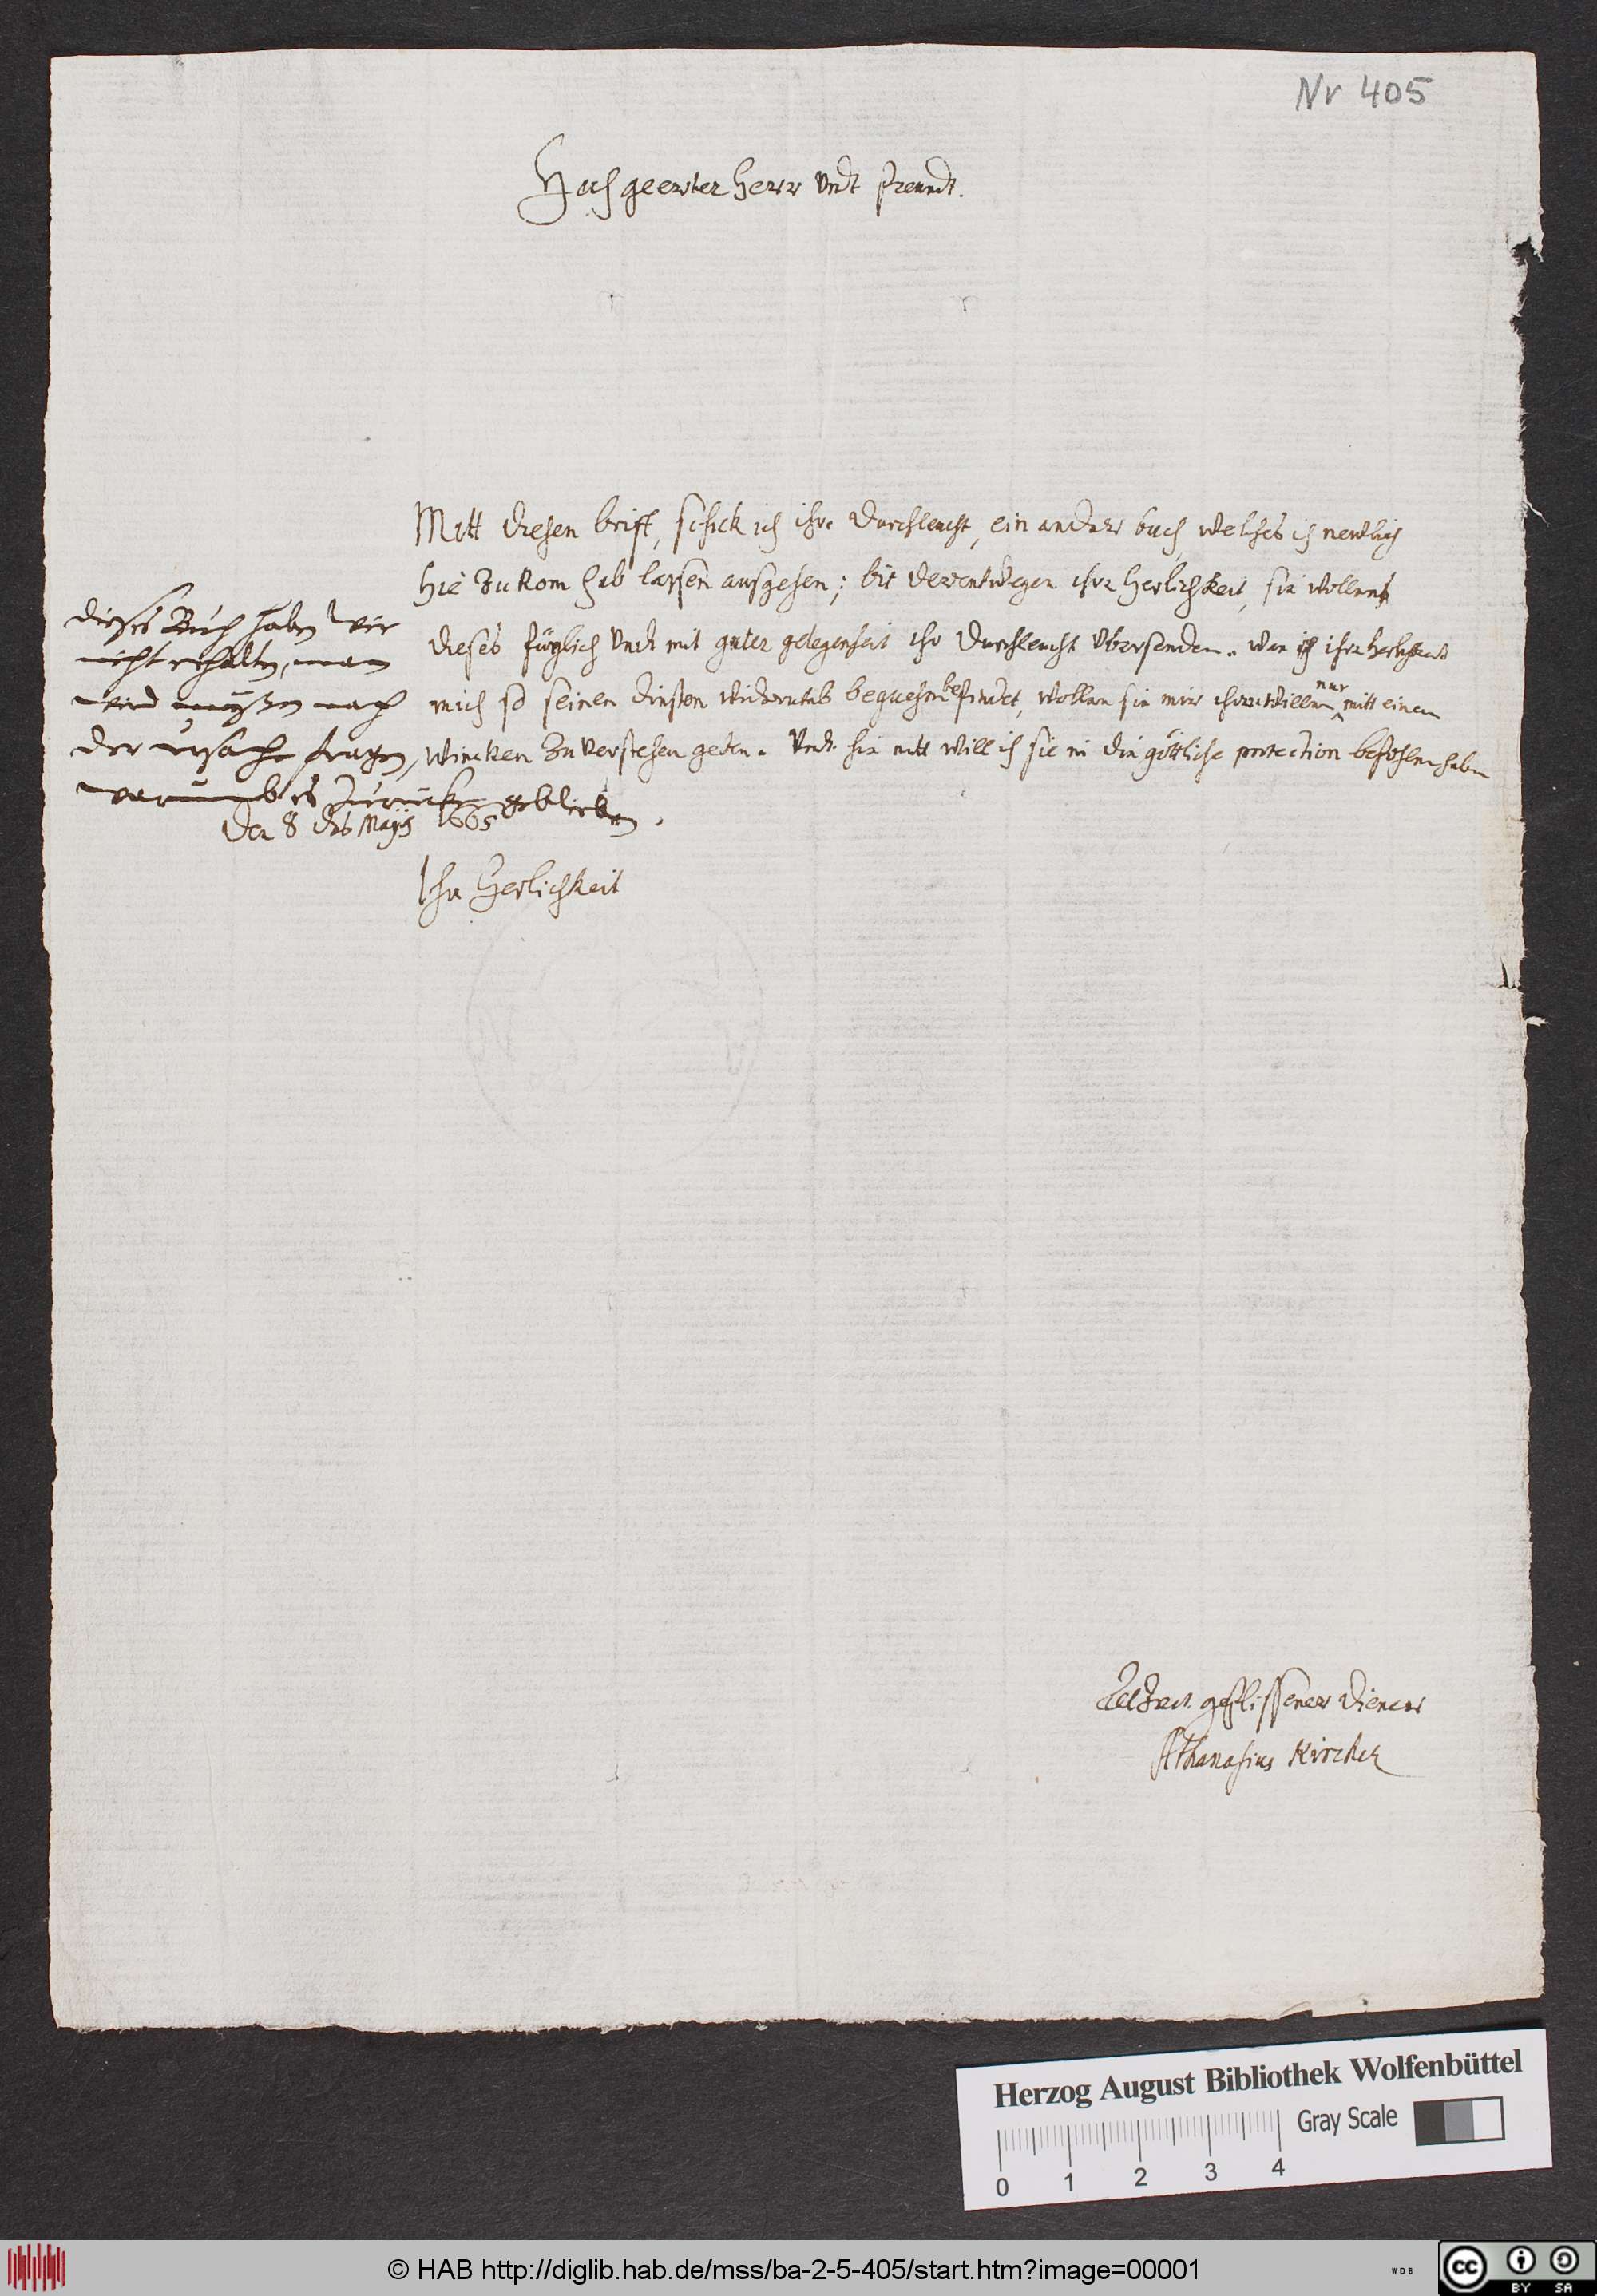 Nr 405
Hochgeerter Herr Undt freundt.
Mitt diesen briff, schick ich ihre Durchleucht, ein ander buch, welches ich newlich
hie zu Rom hab lassen ausgehen; bit derentwegen ihr Herlichkeit, sie wollen
dieses füglich Undt mit guter gelegenheit ihr Durchleucht Übersenden. wan ich ihre herlichkeit
mich so seinen dinsten widerumb bequehm befindet, wollen sie mir ihren willen nur mitt einem
wincken zu verstehen geben. Undt hie mitt will ich sie in die göttliche protection befohlen haben
dieses Buch haben Wir
nicht erhalten, man
wird müssen nach
der ursache fragen,
warumb es zurücke geblieben.
Den 8 des Maijs 1665
Ihr Herlichkeit
geflissener Diener
Athanasius Kircher
Herzog August Bibliothek Wolfenbüttel
Gray Scale
0 1 2 3 4
© HAB http://diglib.hab.de/mss/ba-2-5-405/start.htm?image=00001
WDB
cc BY SA